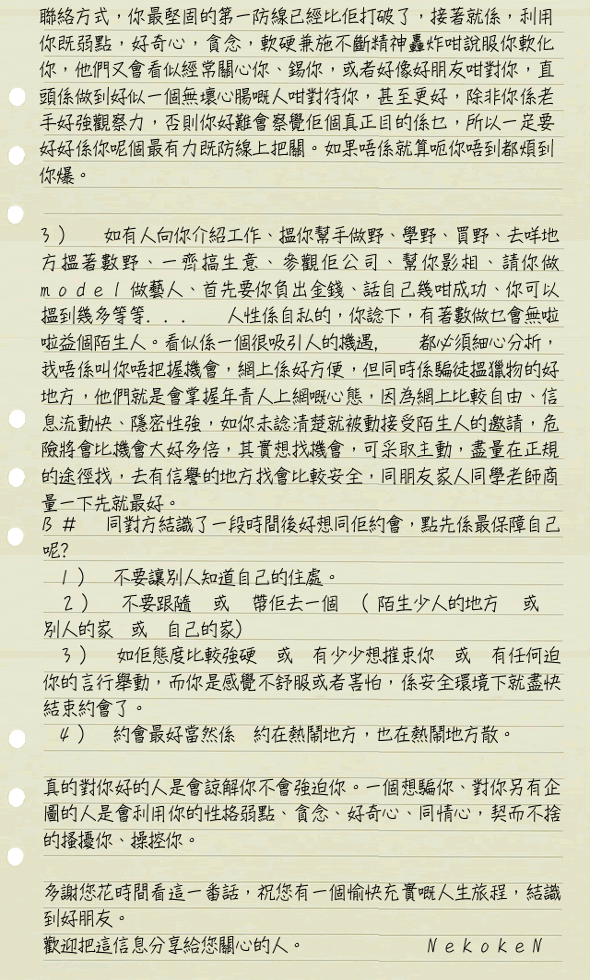 聯絡方式，你最堅固的第一防線已經比佢打破了，接著就係，利用
你既弱點，好奇心，貪念，軟硬兼施不斷精神轟炸咁說服你軟化
你，他們又會看似經常關心你、錫你，或者好像好朋友咁對你，直
頭係做到好似一個無壞心腸嘅人咁對待你，甚至更好，除非你係老
手好強觀察力，否則你好難會察覺佢個真正目的係乜，所以一定要
好好係你呢個最有力既防線上把關。如果唔係就算呃你唔到都煩到
你爆。
3） 如有人向你介紹工作、搵你幫手做野、學野、買野、去咩地
方搵著數野、一齊搞生意、參觀佢公司、幫你影相、請你做
model做藝人、首先要你負出金錢、話自己幾咁成功、你可以
搵到幾多等等... 人性係自私的，你諗下，有著數做乜會無啦
啦益個陌生人。看似係一個很吸引人的機遇, 都必須細心分析，
我唔係叫你唔把握機會，網上係好方便，但同時係騙徒搵獵物的好
地方，他們就是會掌握年青人上網嘅心態，因為網上比較自由、信
息流動快、隱密性強，如你未諗清楚就被動接受陌生人的邀請，危
險將會比機會大好多倍，其實想找機會，可采取主動，盡量在正規
的途徑找，去有信譽的地方找會比較安全，同朋友家人同學老師商
量一下先就最好。
B# 同對方結識了一段時間後好想同佢約會，點先係最保障自己
呢?
1） 不要讓別人知道自己的住處。
2） 不要跟隨 或 帶佢去一個 （陌生少人的地方 或
別人的家 或 自己的家）
3） 如佢態度比較強硬 或 有少少想摧束你 或 有任何迫
你的言行舉動，而你是感覺不舒服或者害怕，係安全環境下就盡快
結束約會了。
4） 約會最好當然係 約在熱鬧地方，也在熱鬧地方散。
真的對你好的人是會諒解你不會強迫你。一個想騙你、對你另有企
圖的人是會利用你的性格弱點、貪念、好奇心、同情心，契而不捨
的搔擾你、操控你。
多謝您花時間看這一番話，祝您有一個愉快充實嘅人生旅程，結識
到好朋友。
歡迎把這信息分享給您關心的人。 NekokeN